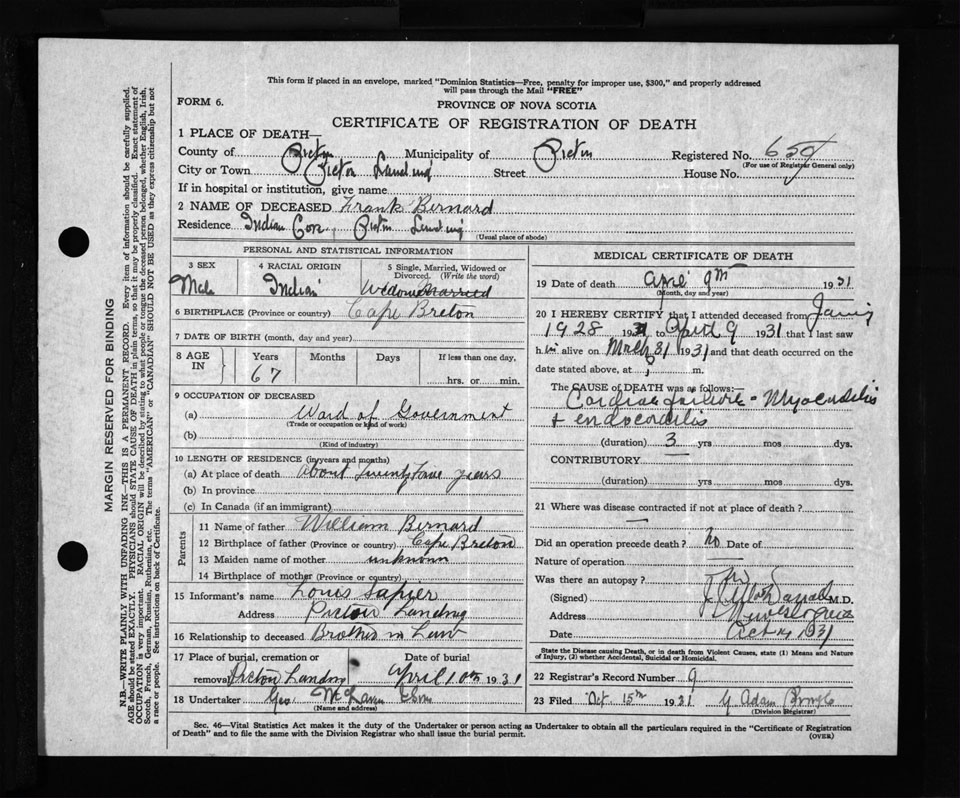 This form if placed in an envelope, marked "Dominion Statistics—Free, penalty for improper use, $300," and properly addressed
will pass through the Mail "FREE"
FORM 6.
PROVINCE OF NOVA SCOTIA
CERTIFICATE OF REGISTRATION OF DEATH
1 PLACE OF DEATH—
County of Pictou Municipality of Pictou Registered No.
(For use of Registrar General only)
City or Town Pictou Landing Street House No.
If in hospital or institution, give name
2 NAME OF DECEASED Frank Bernard
Residence Indian Pictou Landing
(Usual place of abode)
PERSONAL AND STATISTICAL INFORMATION
3 SEX 4 RACIAL ORIGIN 5 Single, Married, Widowed or
Divorced. (Write the word)
Male Indian
6 BIRTHPLACE (Province or country) Cape Breton
7 DATE OF BIRTH (month, day and year)
8 AGE IN Years Months Days If less than one day,
67 hrs. or min.
9 OCCUPATION OF DECEASED
(a) Ward of Government
(Trade or occupation or kind of work)
(b)
(Kind of industry)
10 LENGTH OF RESIDENCE (in years and months)
(a) At place of death About years
(b) In province
(c) In Canada (if an immigrant)
Parents
11 Name of father William Bernard
12 Birthplace of father (Province or country) Cape Breton
13 Maiden name of mother unknown
14 Birthplace of mother (Province or country)
15 Informant's name Louis Sapier
Address Pictou Landing
16 Relationship to deceased Brother in Law
17 Place of burial, cremation or Date of burial
removal Pictou Landing April 10th 1931
18 Undertaker Geo
(Name and address)
MEDICAL CERTIFICATE OF DEATH
19 Date of death 9th 1931
(Month, day and year)
20 I HEREBY CERTIFY that I attended deceased from
1928 to 9 1931 that I last saw
h alive on 31 1931 and that death occurred on the
date stated above, at m.
The CAUSE OF DEATH was as follows:—
Cardiac failure - Myocarditis
+ endocarditis
(duration) 3 yrs mos dys.
CONTRIBUTORY
(duration) yrs mos dys.
21 Where was disease contracted if not at place of death?
—
Did an operation precede death? no Date of
Nature of operation
Was there an autopsy?
(Signed) M.D.
Address
Date Oct 14 1931
State the Disease causing Death, or in death from Violent Causes, state (1) Means and
Nature of Injury, (2) whether Accidental, Suicidal or Homicidal.
22 Registrar's Record Number 9
23 Filed Oct. 15th 1931
(Division Registrar)
Sec. 46—Vital Statistics Act makes it the duty of the Undertaker or person acting as Undertaker to obtain all the particulars required in the "Certificate of Registration
of Death" and to file the same with the Division Registrar who shall issue the burial permit.
(OVER)
MARGIN RESERVED FOR BINDING
N.B.—WRITE PLAINLY WITH UNFADING INK—THIS IS A PERMANENT RECORD. Every item of information should be carefully supplied.
AGE should be stated EXACTLY. PHYSICIANS should STATE CAUSE OF DEATH in plain terms, so that it may be properly classified. Exact statement of
OCCUPATION is very important. RACIAL ORIGIN will be described by stating to what people or tongue the deceased person belonged, whether English, Irish,
Scotch, French, German, Russian, Ruthenian, etc. The terms "AMERICAN" or "CANADIAN" SHOULD NOT BE USED as they express citizenship but not
a race or people. See instructions on back of Certificate.